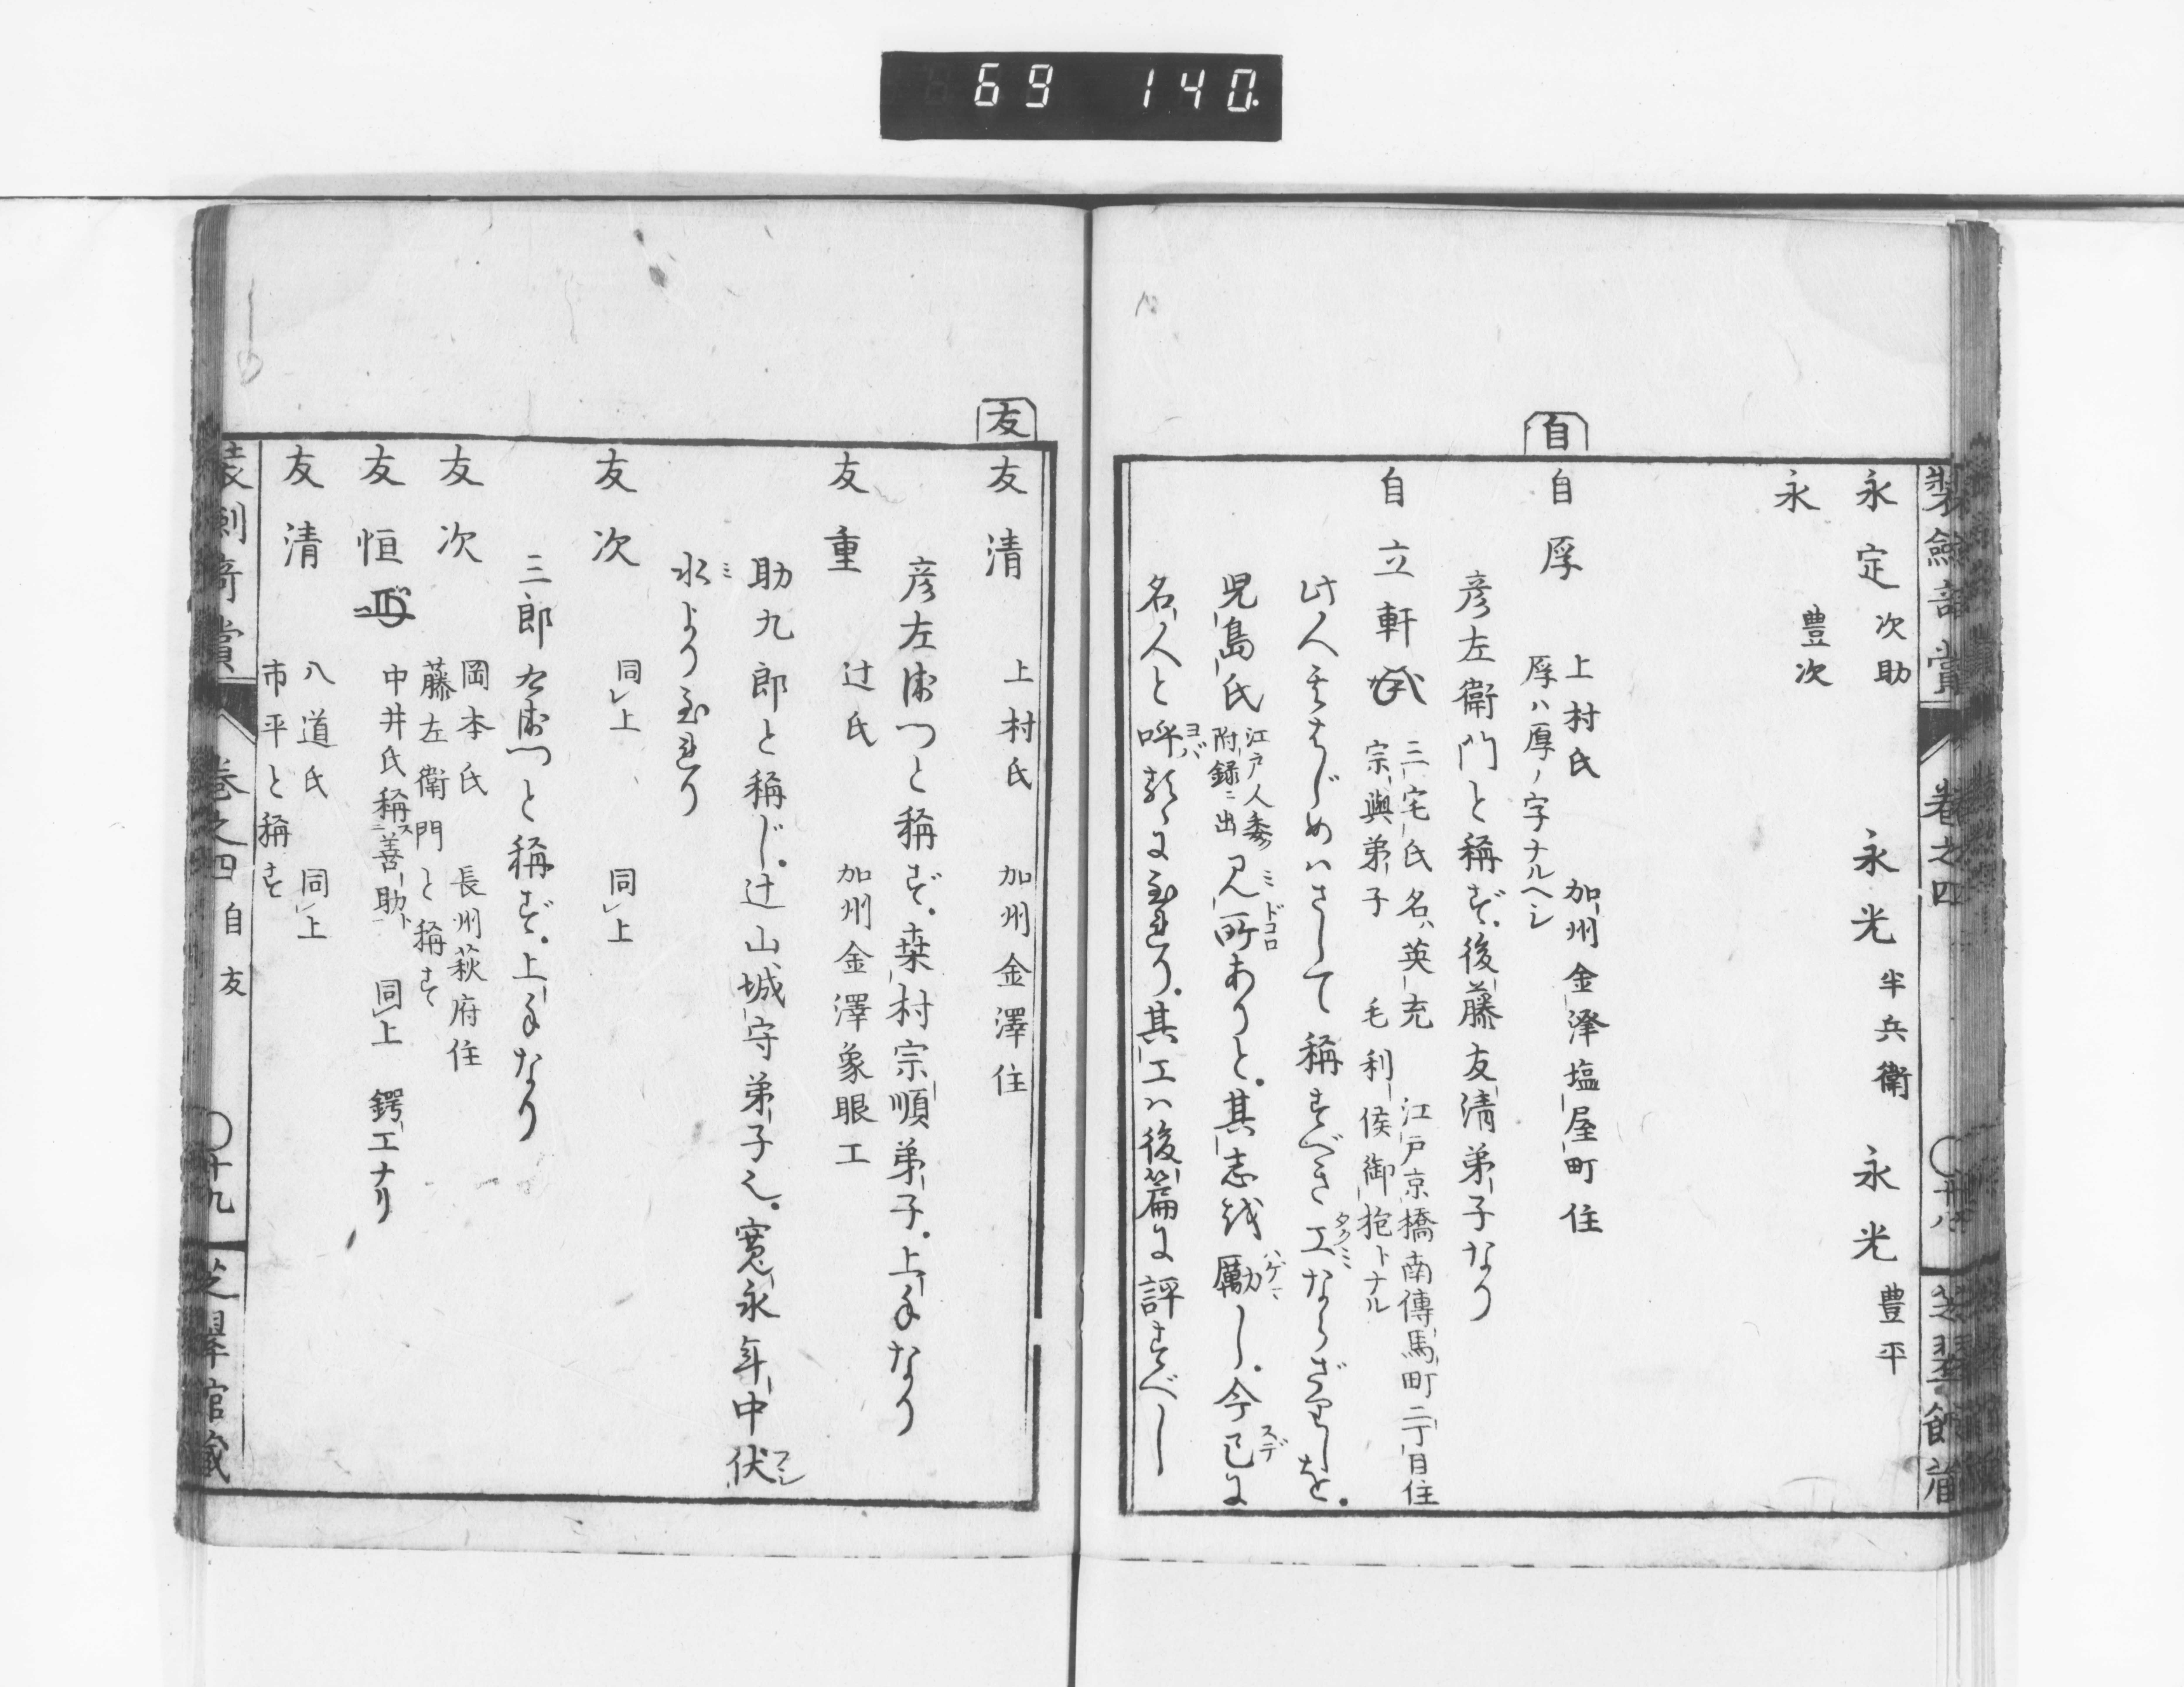 69 140
永定 次助 永光 半兵衛 永光 豊平
永 豊次
自
自厚 上村氏 加州金澤塩屋町住
厚ハ厚ノ字ナルヘシ
彦左衛門と稱す。後藤友清弟子なり
自立軒 三宅氏名ハ英充 江戸京橋南傳馬町二丁目住
宗與弟子 毛利侯御抱トナル
此人をはじめハさして稱すべき工タクミならざりしを。
児島氏 江戸人委ク附録ニ出 見所ミドコロありと。其志を励ハゲマし。今已スデに
名人と呼ヨバるゝに至れり。其工ハ後篇に評すべし
製劔竒賞 巻之四 自 友 〇十九 芝翠館藏
友
友清 上村氏 加州金澤住
彦左衛門と稱す。桒村宗順弟子。上手なり
友重 辻氏 加州金澤象眼工
助九郎と稱じ。辻山城守弟子也。寛永年中伏フシ
水ミより至れり
友次 同上 同上
三郎右衛門と稱す。上手なり
友次 岡本氏 長州萩府住
藤左衛門と稱す
友恒 中井氏稱善助 同上 鍔工ナリ
友清 八道氏 同上
市平と稱す